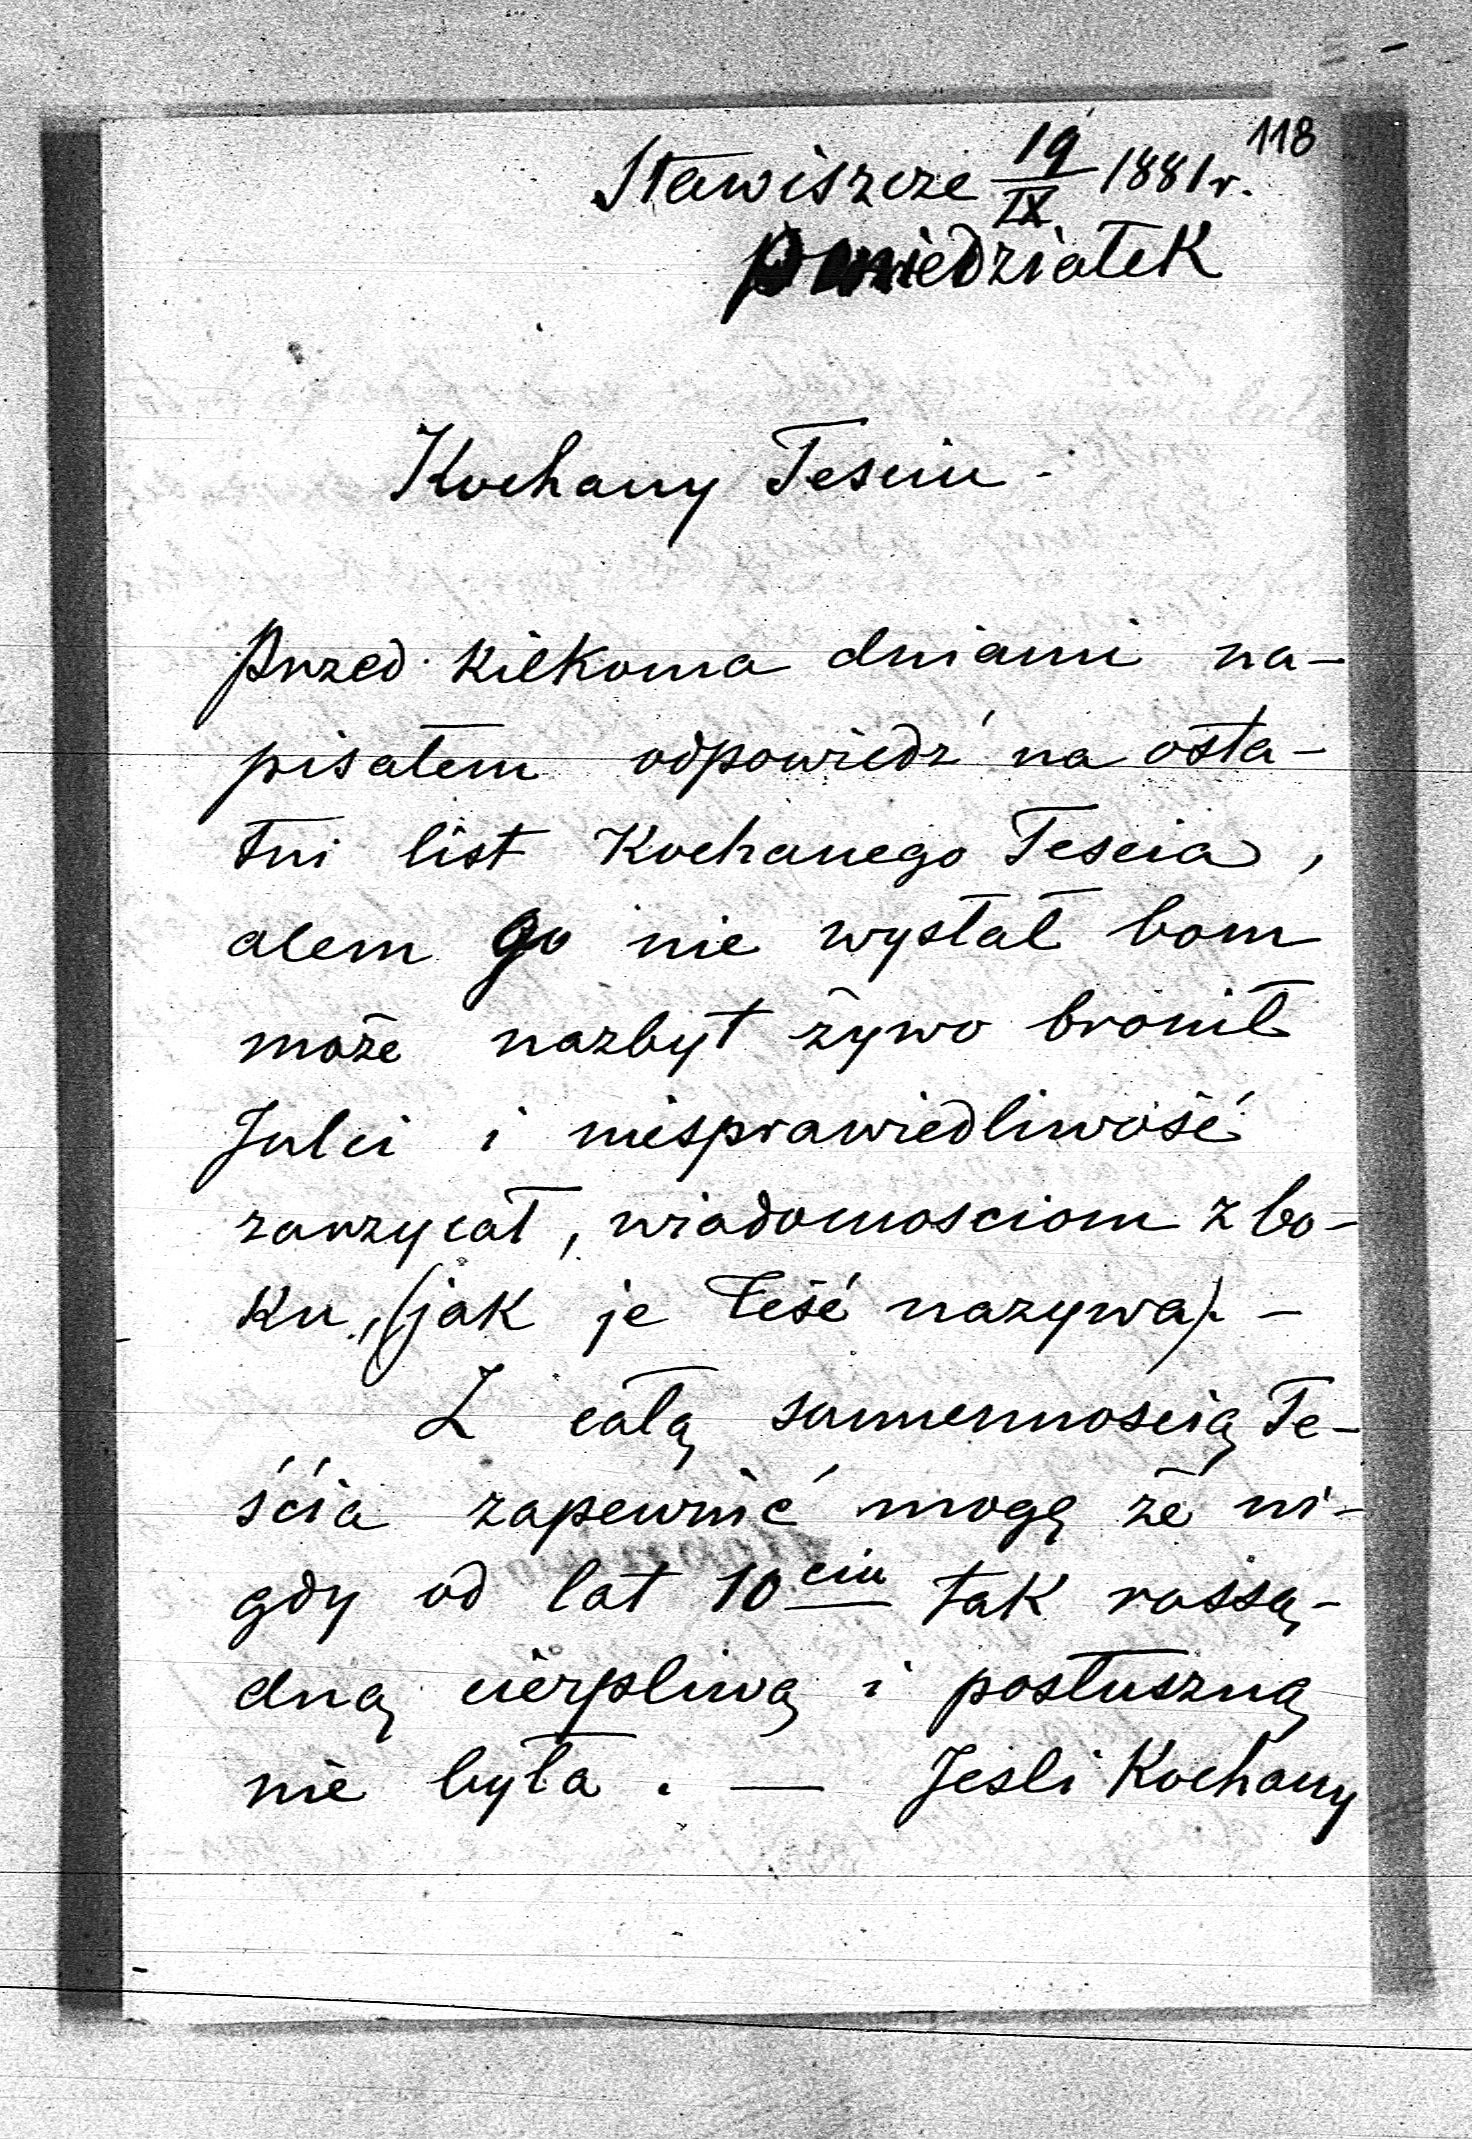 118
Stawiszcze 19/IX 1881 r.
poniedziałek
Kochany Tesciu -
Przed kilkoma dniami na-
pisałem odpowiedź na osta-
tni list Kochanego Tescia,
alem go nie wysłał bom
może nazbyt żywo bronił
Julci i niesprawiedliwość
zarzycał, wiadomosciom z bo-
ku, (jak je Teść nazywa). -
Z całą sumiennoscią Te-
ścia zapewnić mogę że ni-
gdy od lat 10ciu tak rossą-
dną cierpliwą i posłuszną
nie była. — Jesli Kochany